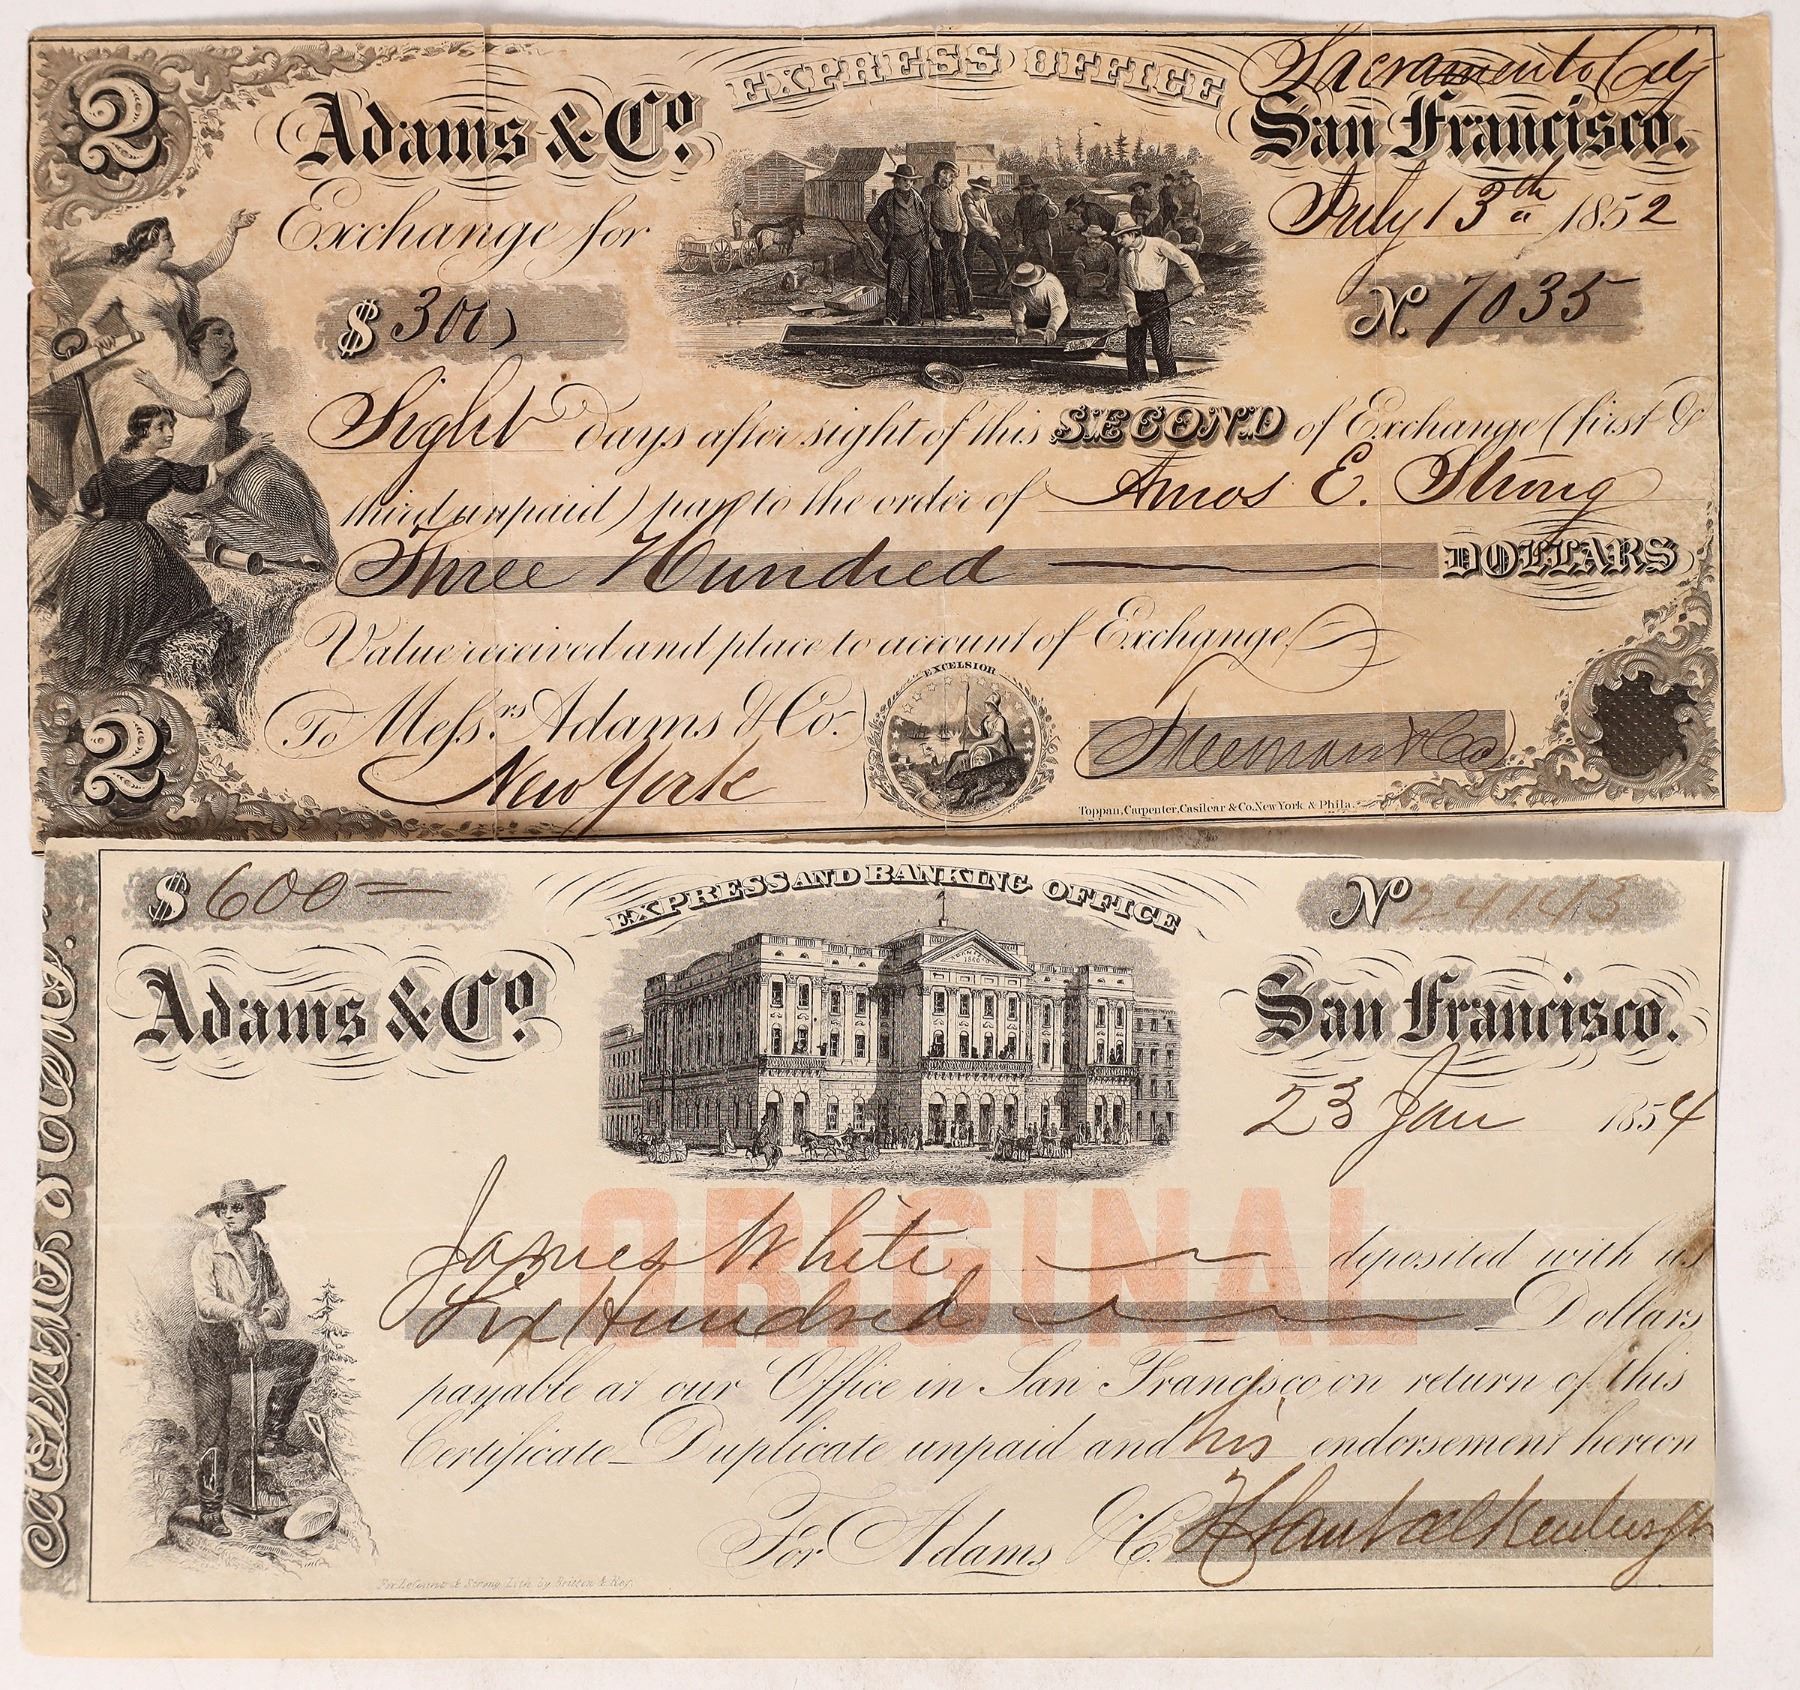 2
EXPRESS OFFICE
Sacramento City
Adams & Co.
San Francisco.
Exchange for
July 13th 1852
$ 300
No. 7035
Sight days after sight of this SECOND of Exchange (first &
third unpaid) pay to the order of Amos E. Strong
Three Hundred DOLLARS
Value received and place to account of Exchange
EXCELSIOR
To Messrs. Adams & Co.
New York
Freeman & Co
2
Toppan, Carpenter, Casilear & Co. New York & Phila.
$ 600
EXPRESS AND BANKING OFFICE
No 24143
Adams & Co.
San Francisco.
23 Jan 1854
ORIGINAL
James White deposited with us
Six Hundred Dollars
payable at our Office in San Francisco on return of this
Certificate Duplicate unpaid and his endorsement hereon
For Adams & Co.
Lith. by Britton & Rey.